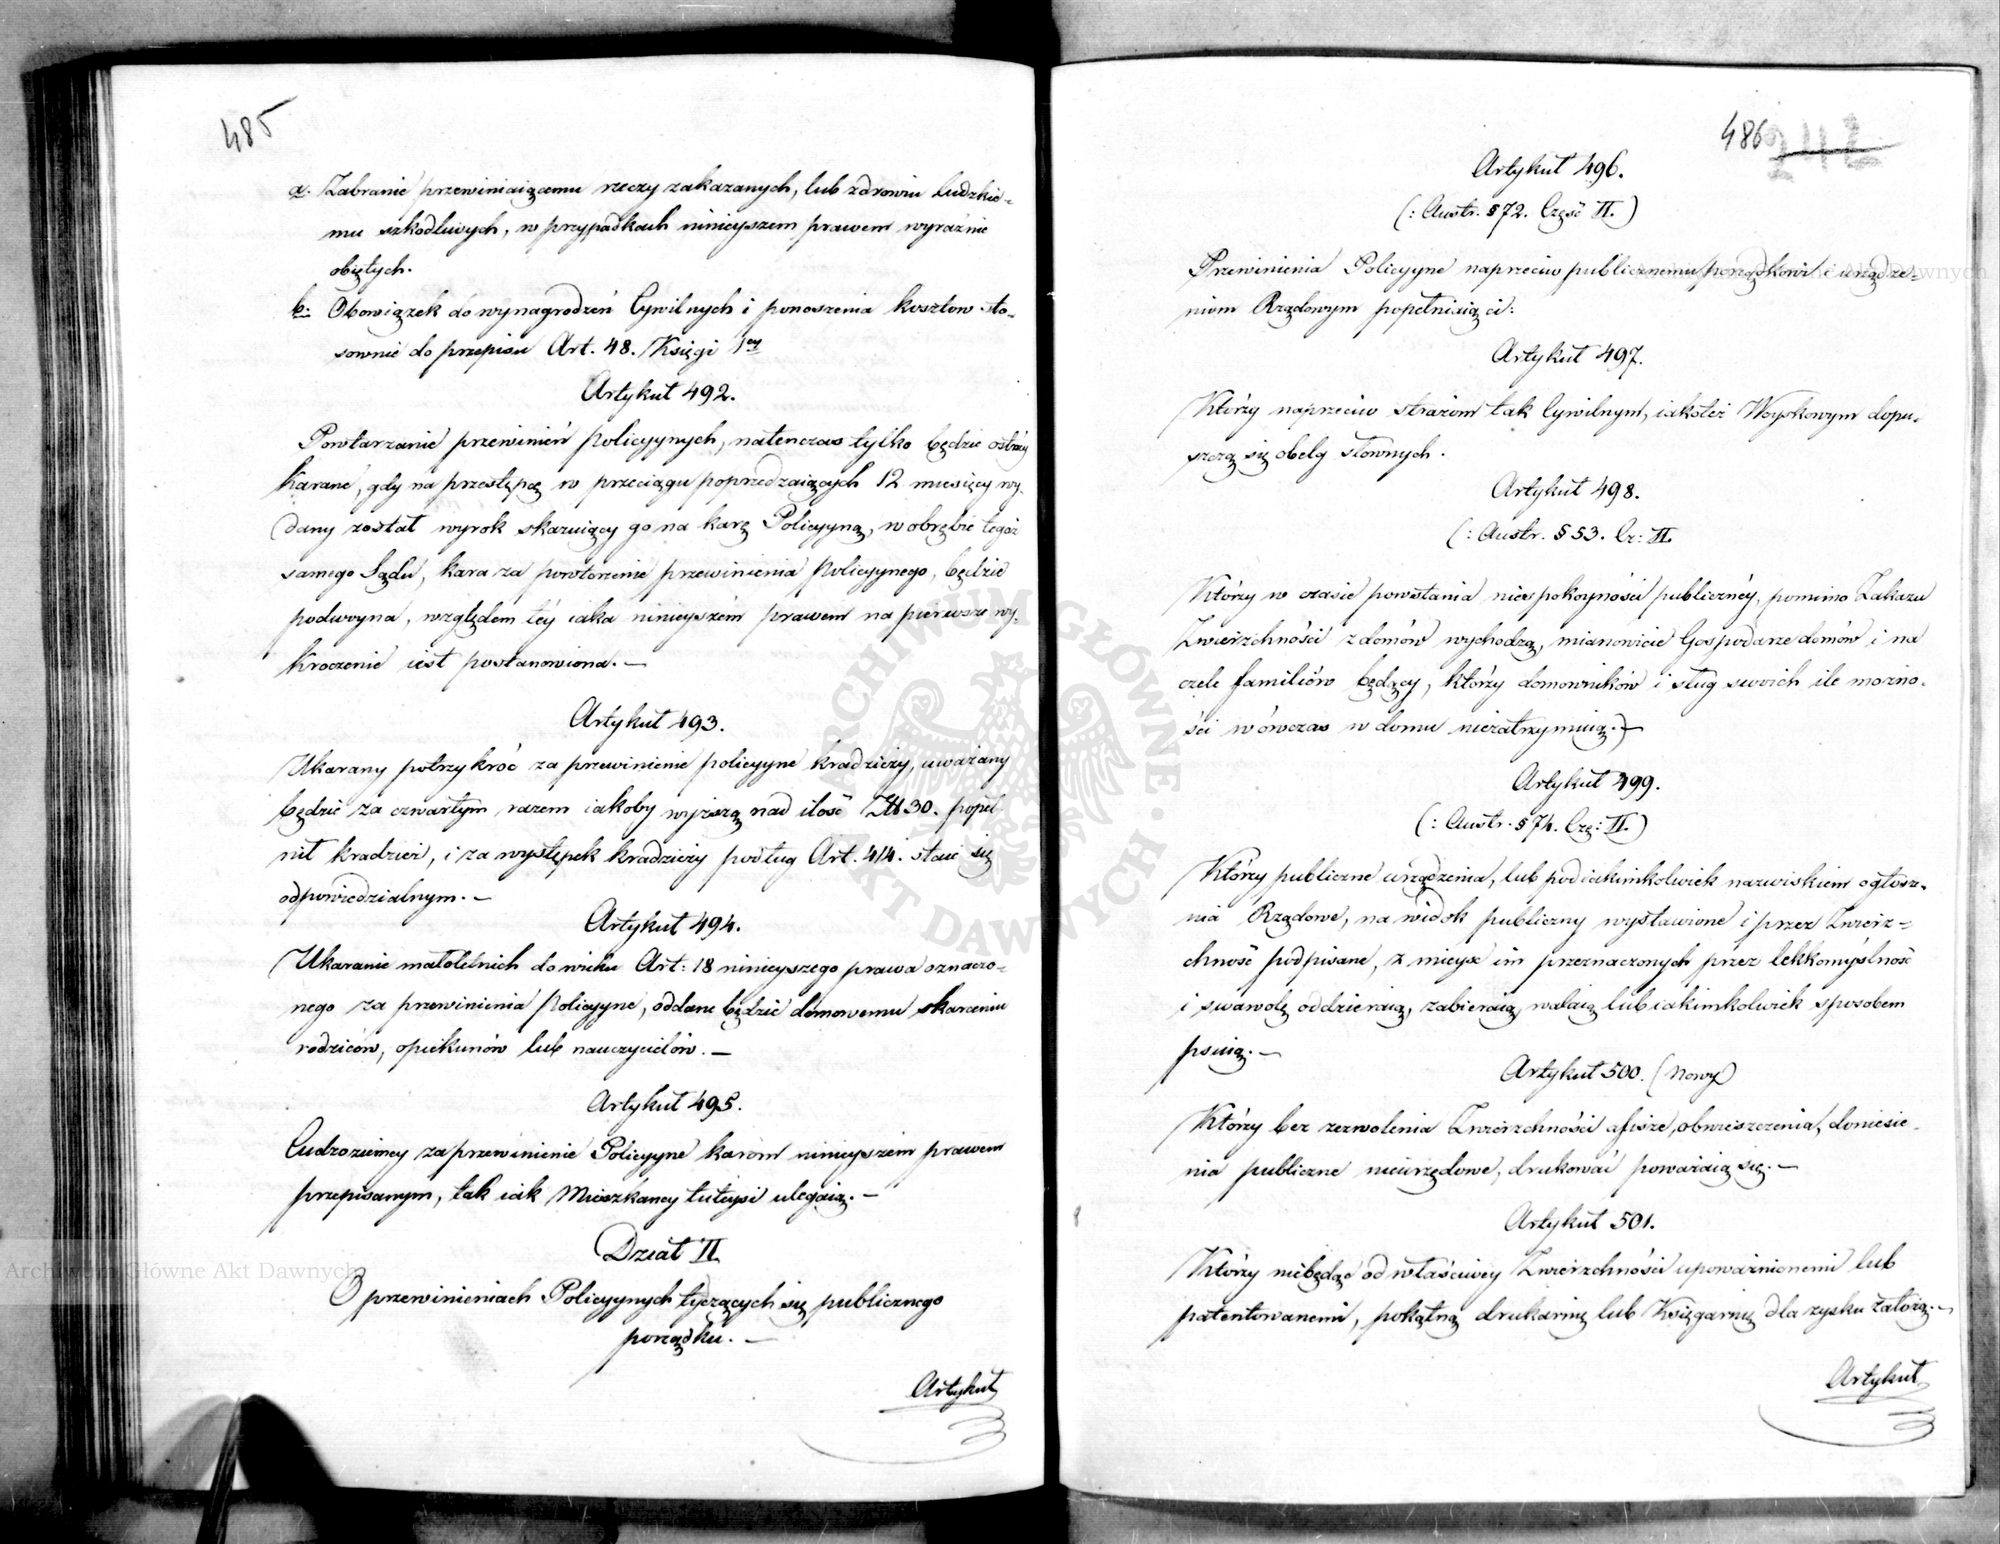 485
a. Zabranie przewiniaiącemu rzeczy zakazanych, lub zdrowiu ludzkie-
mu szkodliwych, w przypadkach ninieyszem prawem wyraźnie
obiętych.
b: Obowiązek do wynagrodzeń Cywilnych i ponoszenia kosztow sto-
sownie do przepisu Art. 48. Księgi 1ey
Artykuł 492.
Powtarzanie przewinień policyynych, natenczas tylko będzie ostrzéy
karane, gdy na przestępcę w przeciągu poprzedzaiących 12 miesięcy wy-
dany został wyrok skazuiący go na karę Policyyną, w obrębie tegoż
samego Sądu, kara za powtórzenie przewinienia policyynego, będzie
podwoyna, względem téy iaka ninieyszém prawem na pierwsze wy-
kroczenie iest postanowiona. —
Artykuł 493.
Ukarany potrzykróć za przewinienie policyyne kradzieży, uważany
będzie za czwartym razem iakoby wyższą nad ilość Zł 30. popeł-
nił kradzież, i za występek kradzieży podług Art. 414. staie się
odpowiedzialnym. —
Artykuł 494.
Ukaranie małoletnich do wieku Art: 18 ninieyszego prawa oznaczo-
nego za przewinienia policyyne, oddane będzie domowemu skarceniu
rodziców, opiekunów lub nauczycielów. —
Artykuł 495.
Cudzoziemcy za przewinienie Policyyne karom ninieyszém prawem
przepisanym, tak iak Mieszkancy tuteysi ulegaią. —
Dział II.
O przewinieniach Policyynych tyczących się publicznego
porządku. —
Artykuł
486 242
Artykuł 496.
(: Austr. § 72. Część II. )
Przewinienia Policyyne naprzeciw publicznemu porządkowi i urządze-
niom Rządowym popełniaią ci:
Artykuł 497.
Którzy naprzeciw strażom tak Cywilnym, iakoteż Woyskowym dopu-
szczą się obelg słownych.
Artykuł 498.
(: Austr. § 53. Cz: II.
Którzy w czasie powstania niespokoyności publicznéy, pomimo Zakazu
Zwierzchności z domów wychodzą, mianowicie Gospodarze domów i na
czele familiów będący, którzy domowników i sług swoich ile możno-
ści wówczas w domu niezatrzymuią. —
Artykuł 499.
(: Austr. § 74. Czę: II. )
Którzy publiczne urządzenia, lub pod iakimkolwiek nazwiskiem ogłosze-
nia Rządowe, na widok publiczny wystawione i przez Zwierz-
chność podpisane, z mieysc im przeznaczonych przez lekkomyślność
i swawolę oddzieraią, zabieraią, walaią lub iakimkolwiek sposobem
psuią. —
Artykuł 500. (Nowy)
Którzy bez zezwolenia Zwierzchności afisze, obwieszczenia, doniesie-
nia publiczne nieurzędowe, drukować poważaią się. —
Artykuł 501.
Którzy niebędąc od właściwey Zwierzchności upoważnionemi lub
patentowanemi, pokątną drukarnię lub Księgarnię dla zysku założą. —
Artykuł
ARCHIWUM GŁÓWNE AKT DAWNYCH
Archiwum Główne Akt Dawnych
Archiwum Główne Akt Dawnych